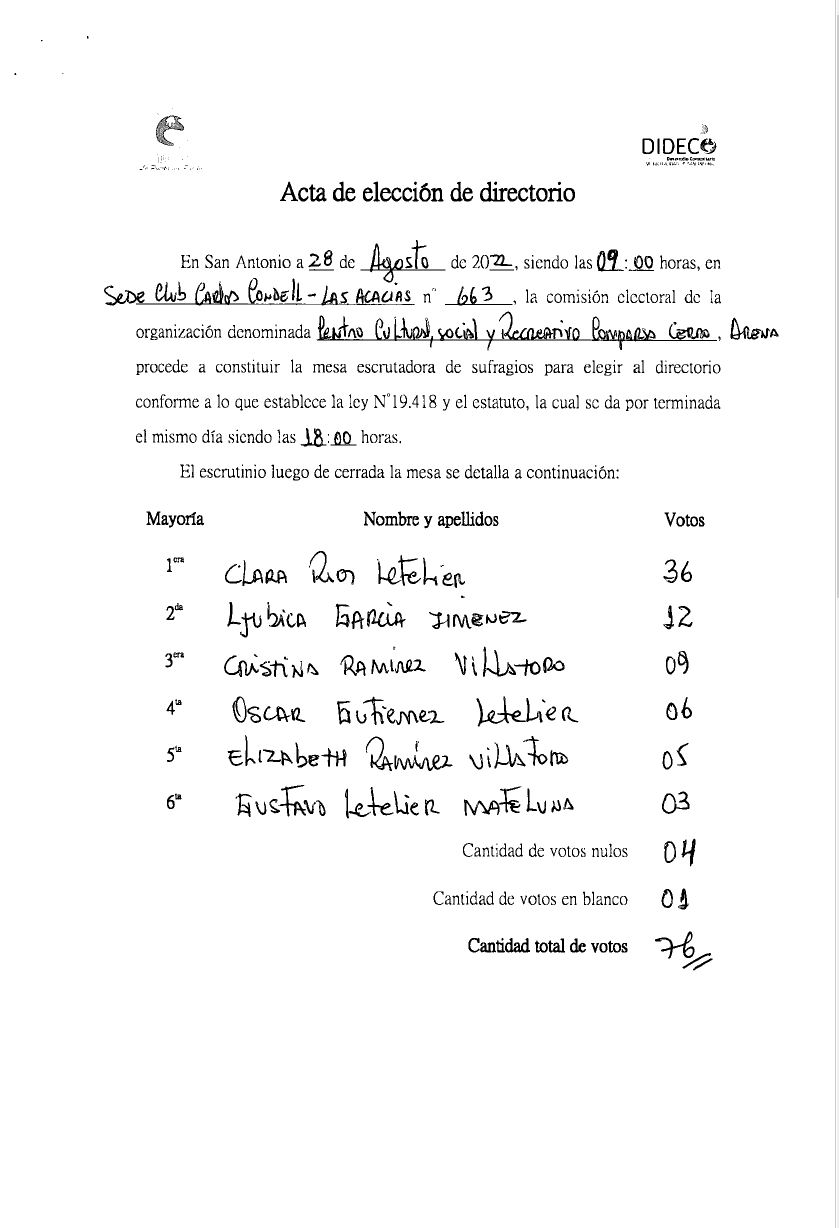 DIDECO
Desarrollo Comunitario
Acta de elección de directorio
En San Antonio a 28 de Agosto de 2022, siendo las 09:00 horas, en
SEDE Club CARlos CONDEll - LAS ACACIAS n° 663, la comisión electoral de la
organización denominada CENtRO CultuRAl, social y RECREAtivo CompARSA CERRO, ARENA
procede a constituir la mesa escrutadora de sufragios para elegir al directorio
conforme a lo que establece la ley N°19.418 y el estatuto, la cual se da por terminada
el mismo día siendo las 18:00 horas.
El escrutinio luego de cerrada la mesa se detalla a continuación:
Mayoría Nombre y apellidos Votos
1era CLARA Rios LetelieR 36
2da Ljubica GARCIA JIMENEZ 12
3era CRistiNA RAMIREZ VillAtoRO 09
4ta OSCAR GutieRREZ letelieR 06
5ta ElizAbETH RAMÍREZ VillAtoRO 05
6ta GUSTAVO letelieR MATELUNA 03
Cantidad de votos nulos 04
Cantidad de votos en blanco 01
Cantidad total de votos 76